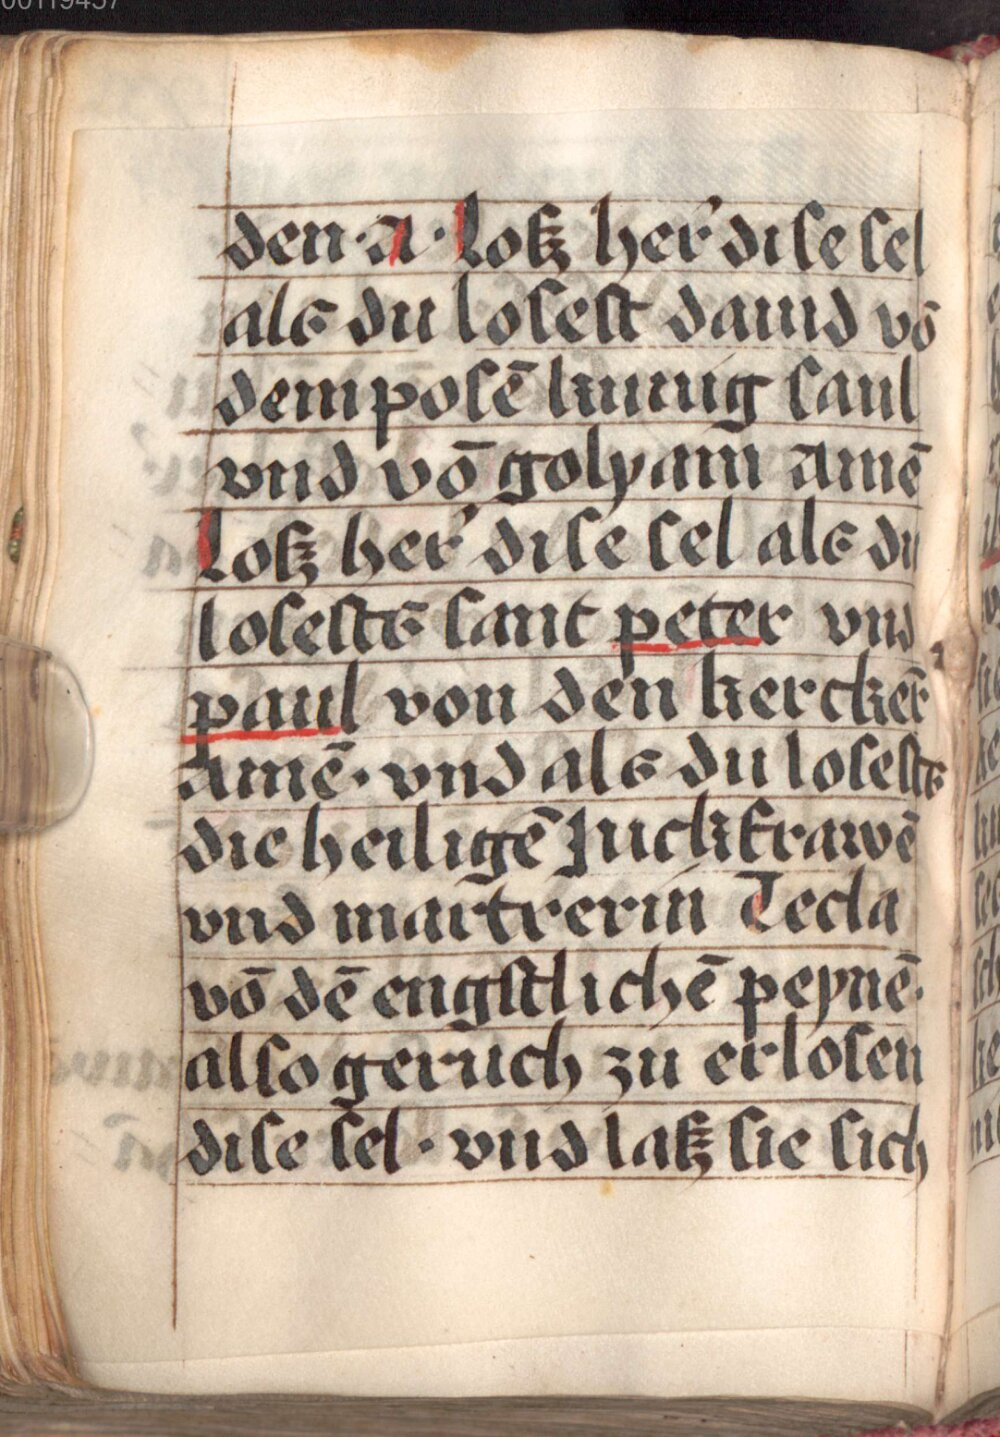 00119437
den · a · Losz her' dise sel
als du losest dauid vō
dem posē kunnig saul
vnd vō golyam amē
Losz her' dise sel als du
losests sant peter vnd
paul von den kerckēr
amē · vnd als du losests
die heiligē Juckfrawē
vnd martrerin Tecla
vō dē engstlichē peynē ·
also geruch zu erlosen
dise sel · vnd lasz sie sich